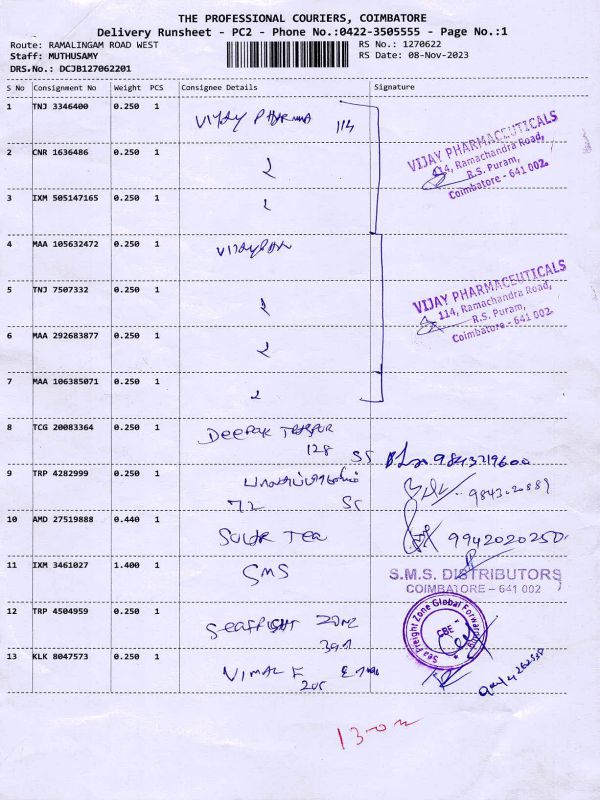 THE PROFESSIONAL COURIERS, COIMBATORE
Delivery Runsheet - PC2 - Phone No.:0422-3505555 - Page No.:1
Route: RAMALINGAM ROAD WEST
RS No.: 1270622
Staff: MUTHUSAMY
RS Date: 08-Nov-2023
DRS.No.: DCJB127062201
S No Consignment No Weight PCS Consignee Details Signature
1 TNJ 3346400 0.250 1 VIJAY PHARMA 114
VIJAY PHARMACEUTICALS
114, Ramachandra Road,
R.S. Puram,
Coimbatore - 641 002.
2 CNR 1636486 0.250 1
3 IXM 505147165 0.250 1
4 MAA 105632472 0.250 1
5 TNJ 7507332 0.250 1
VIJAY PHARMACEUTICALS
114, Ramachandra Road,
R.S. Puram,
Coimbatore - 641 002.
6 MAA 292683877 0.250 1
7 MAA 106385071 0.250 1
8 TCG 20083364 0.250 1 DEEPAK
128 SS 9843219600
9 TRP 4282999 0.250 1
72 SS
10 AMD 27519888 0.440 1 SOLAR TEA 9942020250
11 IXM 3461027 1.400 1 SMS
S.M.S. DISTRIBUTORS
COIMBATORE – 641 002
12 TRP 4504959 0.250 1 SEAFRIGHT ZONE
391
Sea Freight Zone Global Forwarding
CBE
13 KLK 8047573 0.250 1 VIMAL E
205